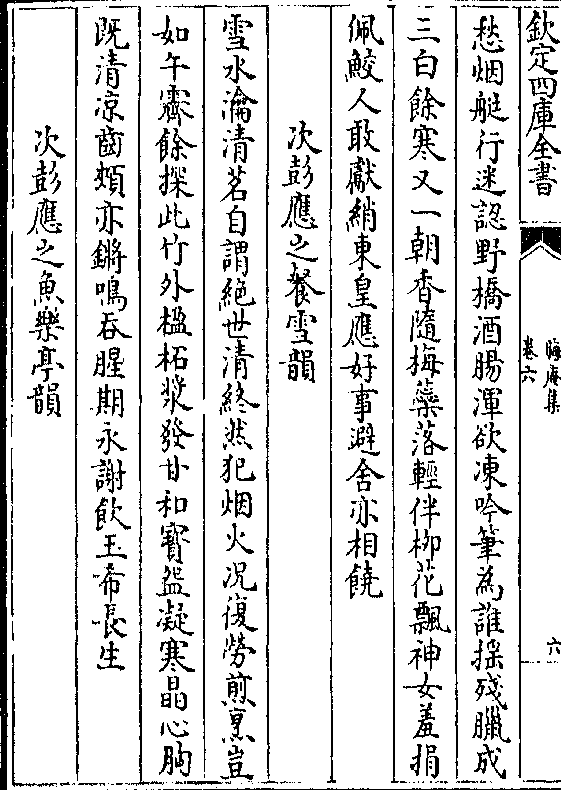 欽定四庫全書
晦庵集
卷六
六
愁烟艇行迷認野橋酒腸渾欲凍吟筆為誰揺殘臘成
三白餘寒又一朝香隨梅蘂落輕伴栁花飄神女羞捐
佩鮫人敢獻綃東皇應好事避舍亦相饒
次彭應之餐雪韻
雪水瀹清茗自謂絶世清終然犯烟火况復勞煎烹豈
如午霽餘探此竹外楹柘漿發甘和寳盌凝寒晶心胸
既清凉齒頰亦鏘鳴吞腥期永謝飲玉希長生
次彭應之魚樂亭韻